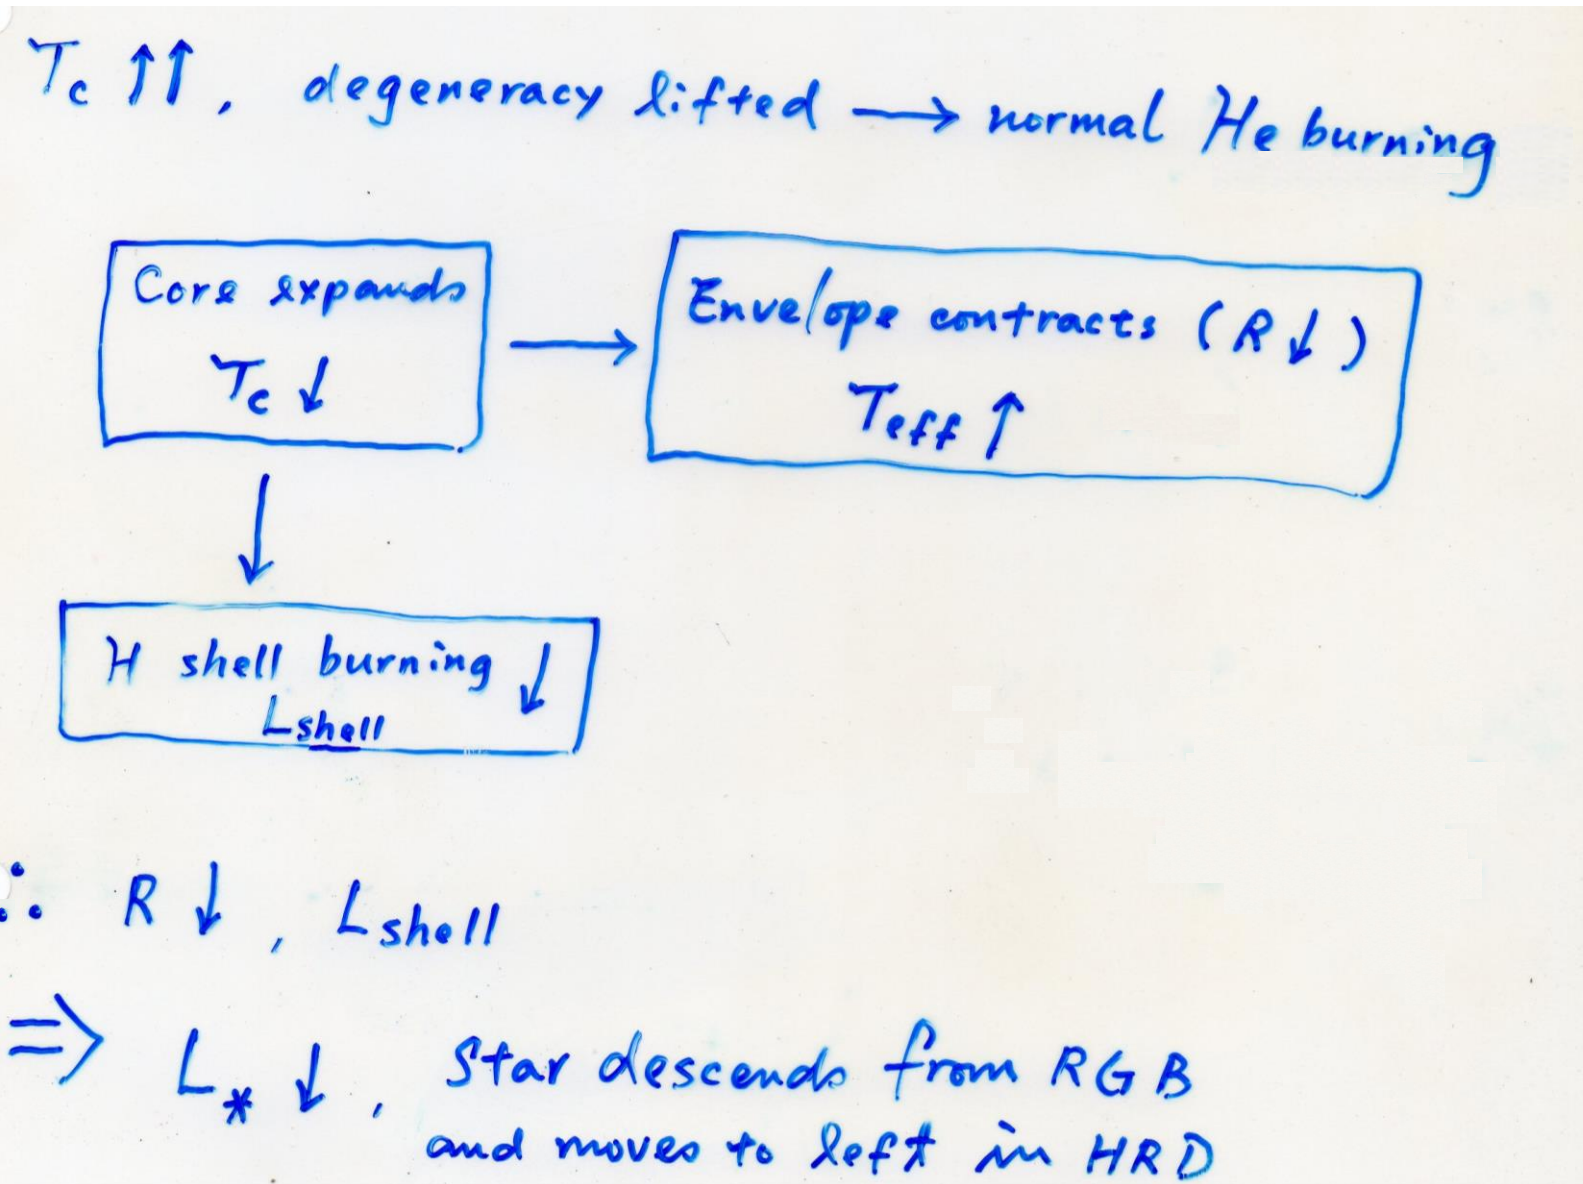 Tc ↑↑, degeneracy lifted → normal He burning
Core expands
Tc ↓
→
Envelope contracts (R↓)
Teff ↑
↓
H shell burning ↓
Lshell
∴ R ↓, Lshell
⇒ L* ↓, Star descends from RGB
and moves to left in HRD